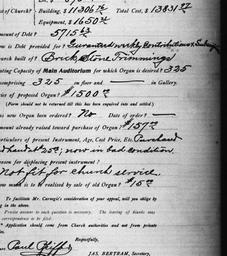 of Church? Building, $11306 Total Cost, $13831
Equipment, $1650
Amount of Debt? 5715
is Debt provided for? Guaranteed weekly Contributions &
Church built of? Brick Stone Trimmings
Seating Capacity of Main Auditorium for which Organ is desired? 325
comprising 325 on floor and in Gallery.
Price of proposed Organ? $1500
(Form should not be returned till this has been enquired into and settled.)
now Organ been ordered? No Date of order?
Amount already raised toward purchase of Organ? $157
Particulars of present Instrument, Age, Cost Price, Etc. Purchased
at 25; now in bad condition
reason for displacing present instrument?
Not fit for church service
is to be realised by sale of old Organ? $15
To facilitate Mr. Carnegie's consideration of your appeal, will you oblige by
ing in the above.
Precise answer to each question is necessary. The leaving of blanks may
correspondence to be filed.
Application should come from Church authorities and not from private
Respectfully,
Paul
JAS. BERTRAM, Secretary,